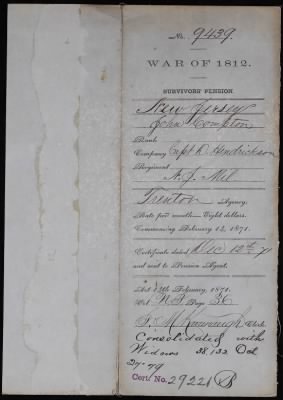 No. 9439.
WAR OF 1812.
SURVIVORS' PENSION
New Jersey
John Compton
Rank
Company Capt D. Hendrickson
Regiment
N. J. Mil
Trenton Agency.
Rate per month—Eight dollars.
Commencing February 14, 1871.
Certificate dated Dec 12th 71
and sent to Pension Agent.
Act 14th February, 1871.
Vol. N.J. Page 36
Clerk
Consolidated with
Widows 38,132 Oct
27-79
Cert. No. 29221